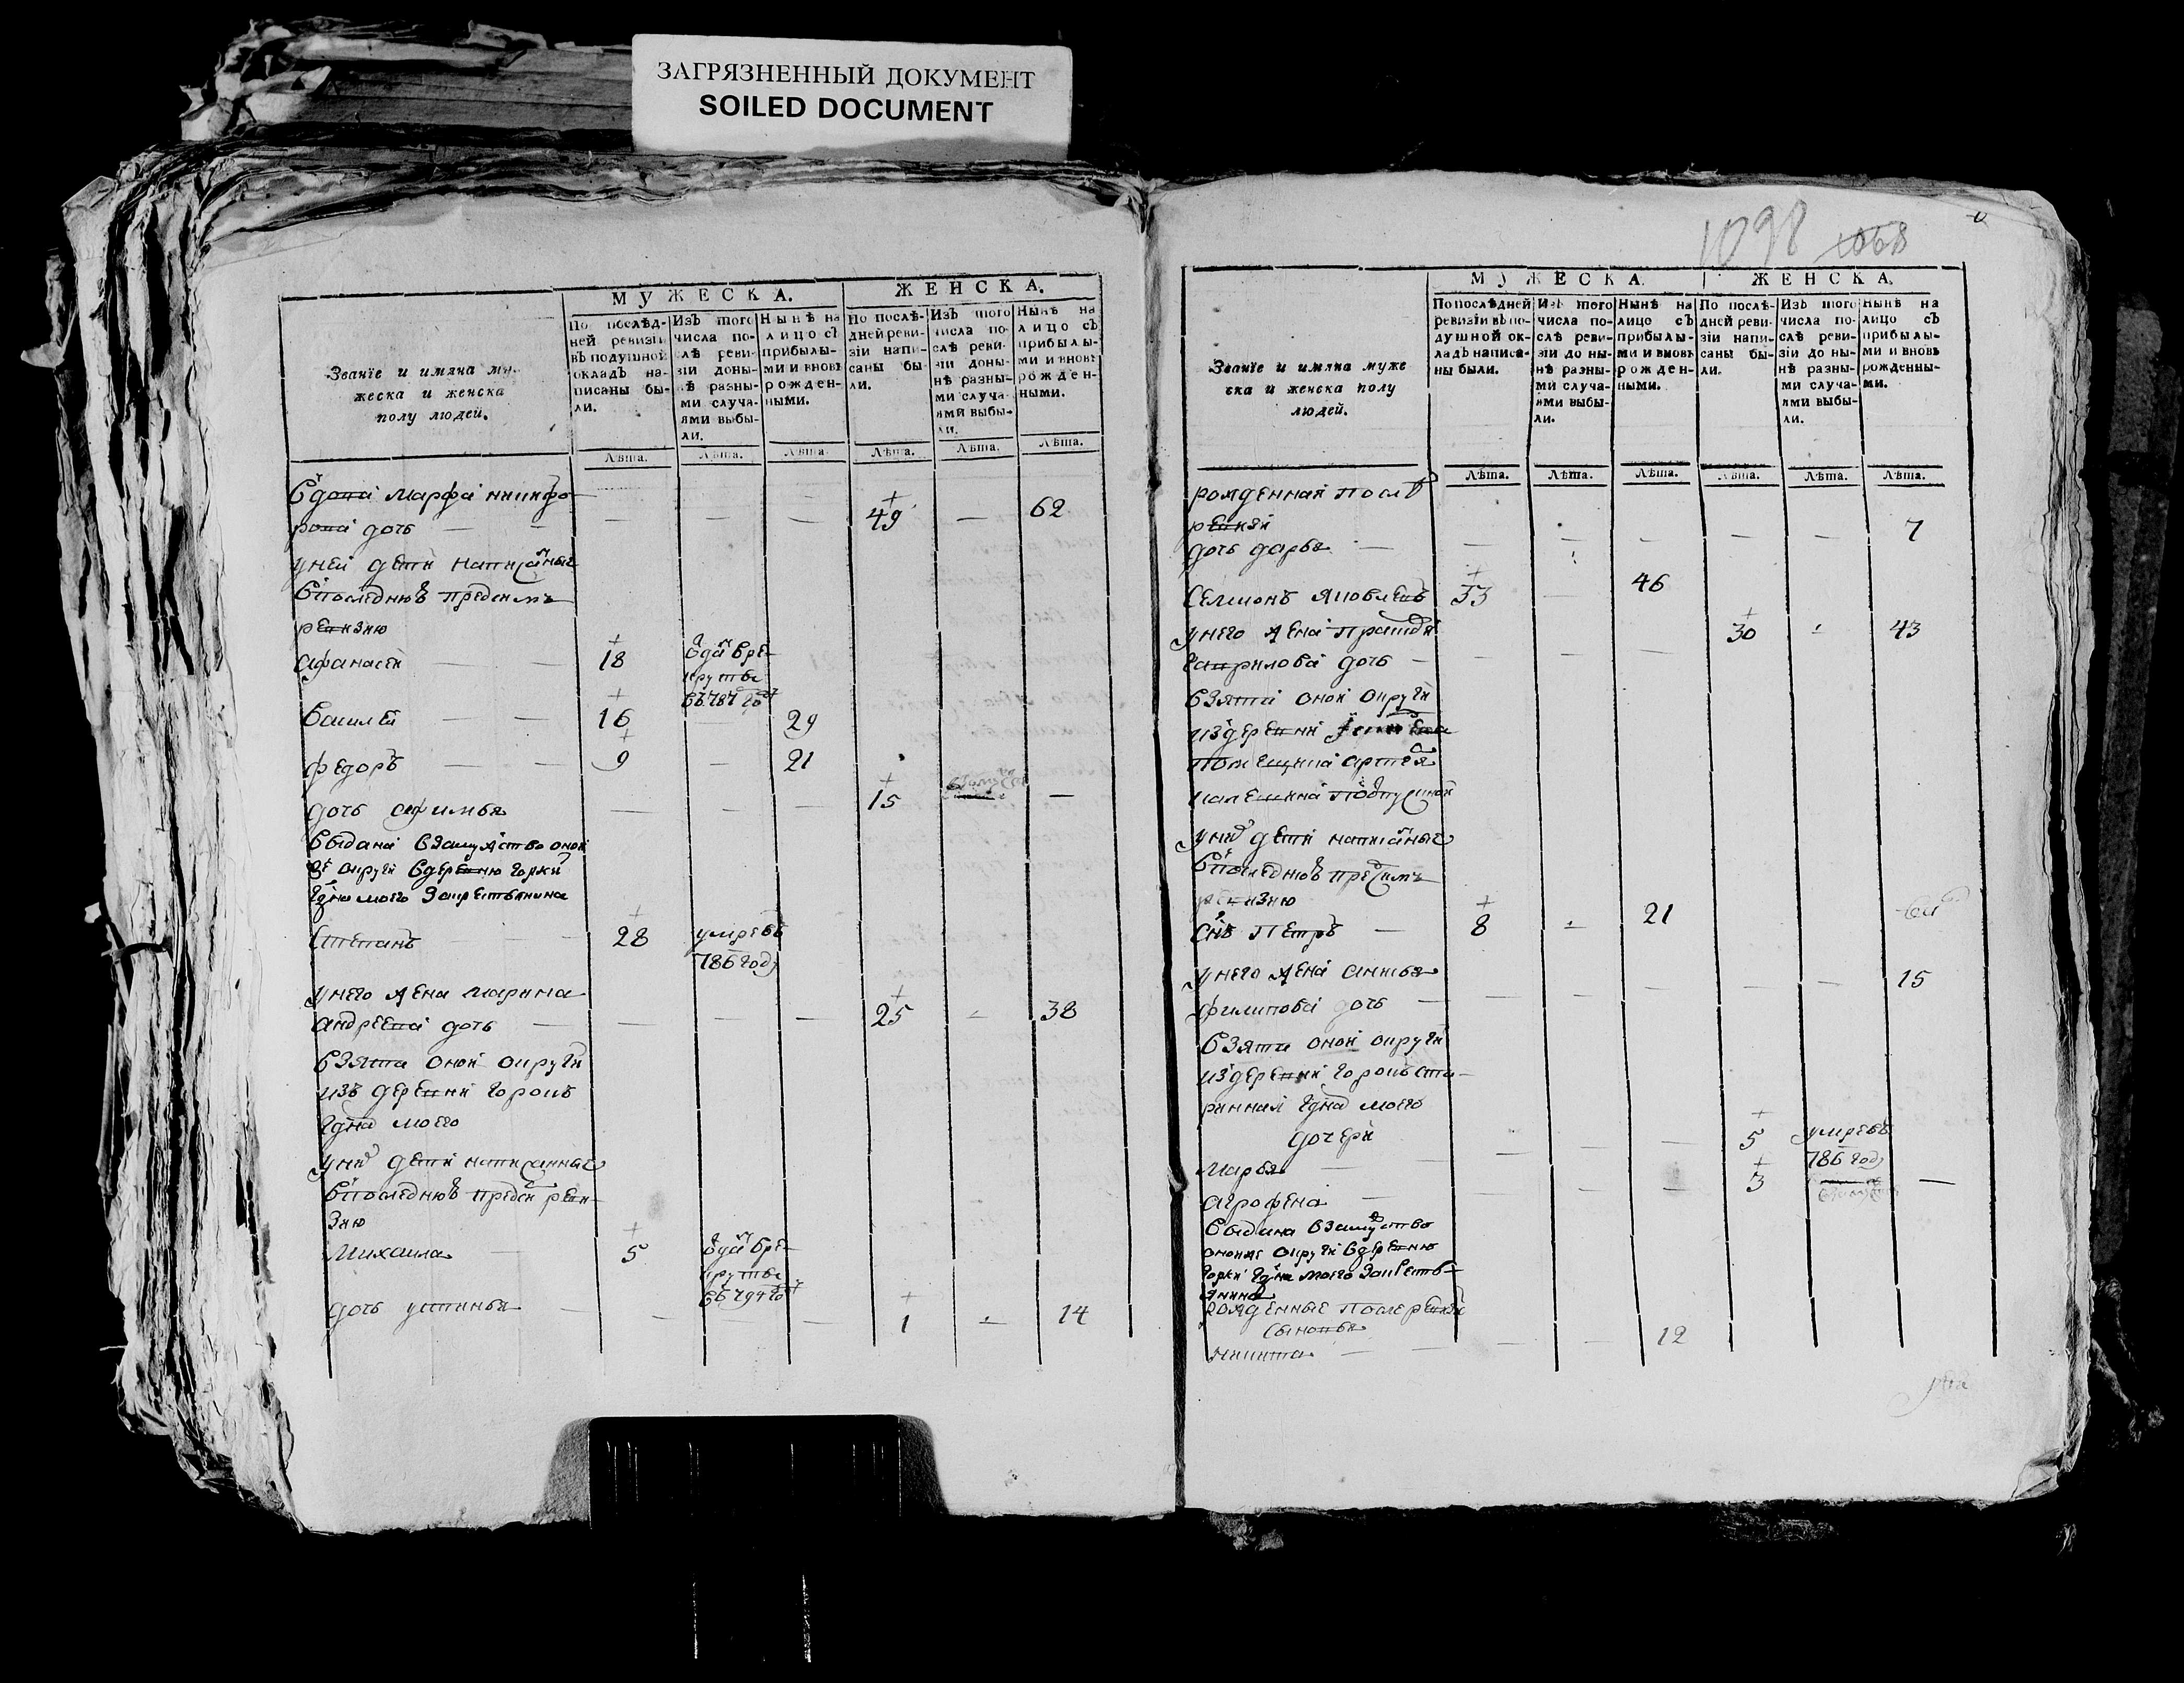 ЗАГРЯЗНЕННЫЙ ДОКУМЕНТ
SOILED DOCUMENT
1098 1068
МУЖЕСКА. ЖЕНСКА.
Званїе и имяна му-
жеска и женска
полу людей.
По послѣд-
ней ревизїи
въ подушной
окладъ на-
писаны бы-
ли.
Изъ того
числа по-
слѣ реви-
зїи доны-
нѣ разны-
ми случа-
ями выбы-
ли.
Нынѣ на
лицо съ
прибылы-
ми и вновь
рожден-
ными.
По послѣ-
дней реви-
зїи напи-
саны бы-
ли.
Изъ того
числа по-
слѣ реви-
зїи доны-
нѣ разны-
ми случа-
ями выбы-
ли.
Нынѣ на
лицо съ
прибылы-
ми и вновь
рожден-
ными.
Лѣта. Лѣта. Лѣта. Лѣта. Лѣта. Лѣта.
вдова марфа никифо
рова дочь — — — — 49 — 62
унеи дети написаные
впоследнюю предсимъ
ревизию
афанасеи — — 18 отдан вре
круты
въ 787 году
василеи — — 16 29
федоръ — — 9 — 21
дочь афимья — — — 15 —
выдана взамужство оной
же округи вдеревню горки
гдна моего закрестьянина
степанъ 28 умре въ
786 году
унего жена марина
андреева дочь — — — — 25 — 38
взята оной округи
изъ деревни горокъ
гдна моего
уних дети написанные
впоследнюю предсим реви
зию
Михаила — 5 отдан вре
круты
въ 794 году
дочь устинья — — — — 1 — 14
МУЖЕСКА. ЖЕНСКА.
Званїе и имяна муже
ска и женска полу
людей.
По послѣдней
ревизїи въ по-
душной ок-
ладъ написа-
ны были.
Изъ того
числа по-
слѣ реви-
зїи до ны-
нѣ разны-
ми случа-
ями выбы-
ли.
Нынѣ на
лицо съ
прибылы-
ми и вновь
рожден-
ными.
По послѣ-
дней реви-
зїи напи-
саны бы-
ли.
Изъ того
числа по-
слѣ реви-
зїи до ны-
нѣ разны-
ми случа-
ями выбы-
ли.
Нынѣ на
лицо съ
прибылы-
ми и вновь
рожденны-
ми.
Лѣта. Лѣта. Лѣта. Лѣта. Лѣта. Лѣта.
рожденная после
ревизии
дочь дарья — — — — — — 7
Семионъ яковлевъ 33 — 46
унего жена
гаврилова дочь — — — — 30 — 43
взята оной округи
издеревни
помещика
уних дети написаные
впоследнюю предсимъ
ревизию
снъ Петръ — 8 — 21
унего жена анисья
филипова дочь — — — — — — 15
взята оной округи
издеревни горокъ ста
ринная гдна моего
дочери
марья — — — — 5 умре въ
786 году
агрофена — — — — 3 —
выдана взамужство
оной же округи вдеревню
горки гдна моего закресть
янина
рожденные после ревизии
сыновья
никита — — — — 12